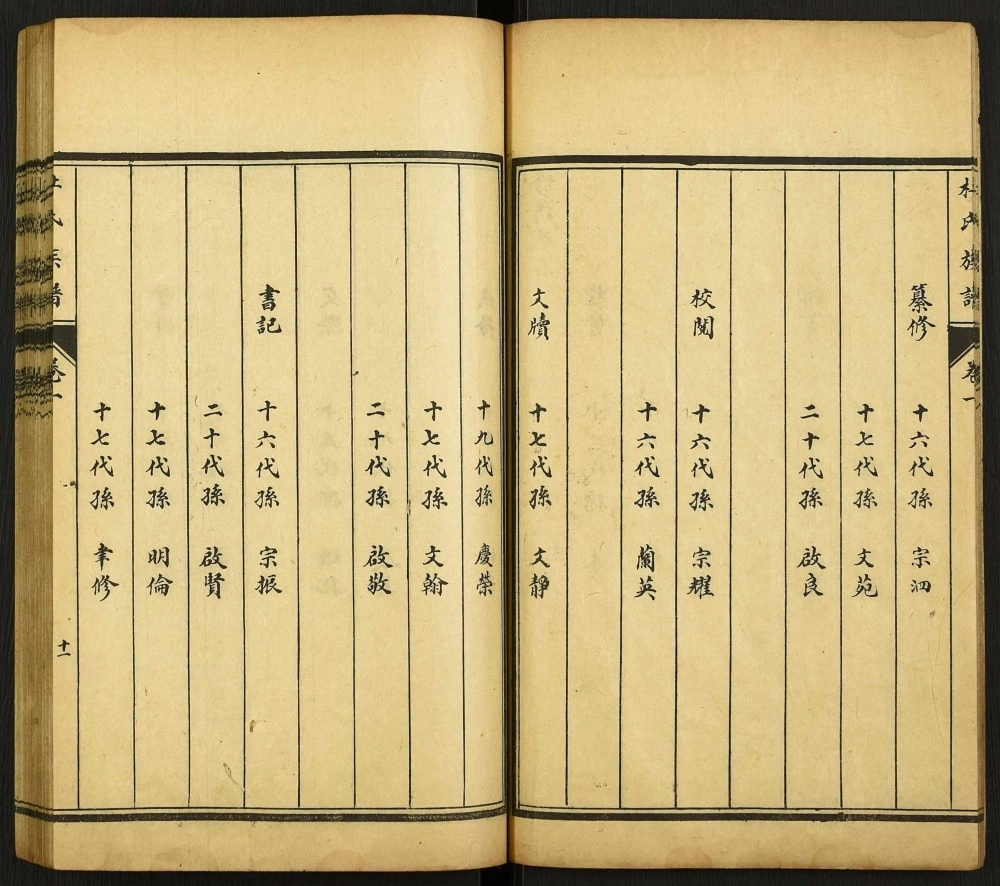 杜氏族譜 卷一
纂修 十六代孫 宗泗
十七代孫 文苑
二十代孫 啟良
校閱 十六代孫 宗耀
十六代孫 蘭英
文牘 十七代孫 文靜
十九代孫 慶榮
十七代孫 文翰
二十代孫 啟敬
書記 十六代孫 宗振
二十代孫 啟賢
十七代孫 明倫
十七代孫 聿修
杜氏族譜 卷一 十一